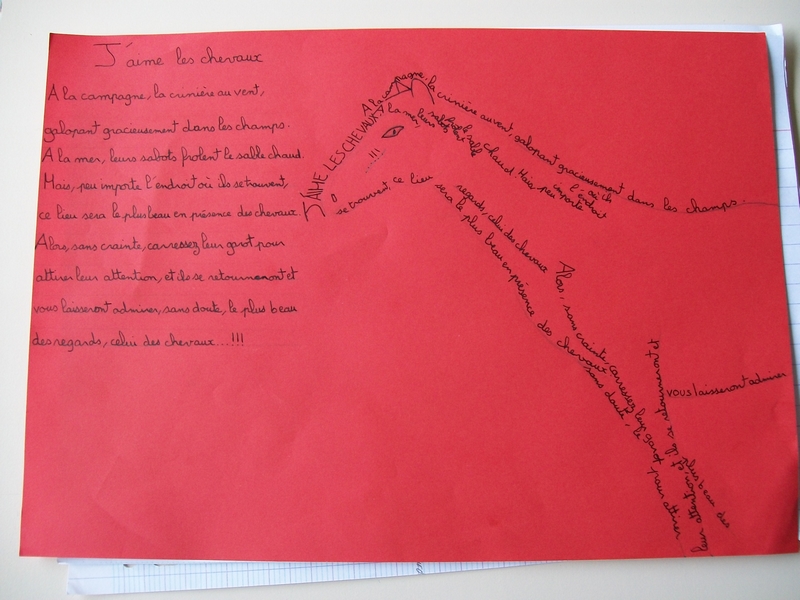 J'aime les chevaux
A la campagne, la crinière au vent,
galopant gracieusement dans les champs.
A la mer, leurs sabots frolent le salle chaud.
Mais, peu importe l'endroit où ils se trouvent,
ce lieu sera le plus beau en présence des chevaux.
Alors, sans crainte, carressez leur garot pour
attirer leur attention, et ils se retourneront et
vous laisseront admirer, sans doute, le plus beau
des regards, celui des chevaux...!!!
J'AIME LES CHEVAUX
A la campagne, la crinière au vent, galopant gracieusement dans les champs.
A la mer, leurs sabots
salle chaud. Mais, peu importe
l'endroit
où
se trouvent, ce lieu
sera le plus beau en présence des chevaux
Alors, sans crainte, carressez leur garot pour attirer
leur attention
ils se retourneront et
vous laisseront admirer
sans doute, le
plus beau des
regards, celui des chevaux
...!!!